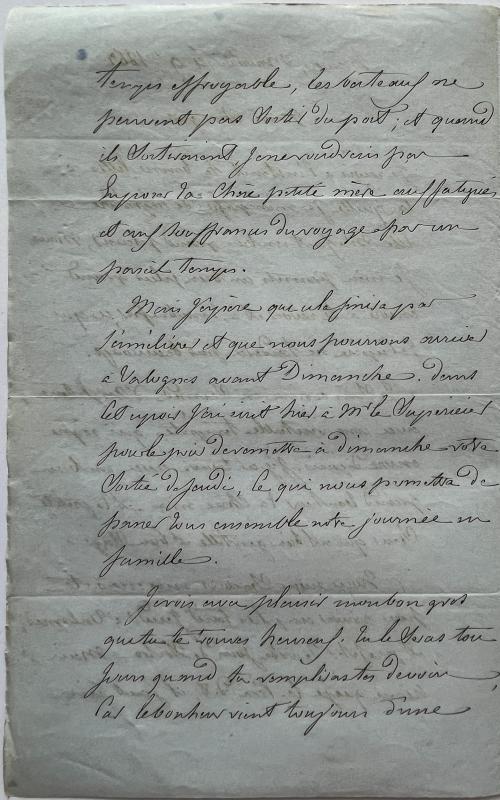 temps effroyable, les bateaux ne
peuvent pas sortir du port ; et quand
ils sortiraient, je ne voudrais pas
exposer ta chère petite mère aux fatigues
et aux souffrances du voyage par un
pareil temps.
Mais j'espère que cela finira par
s'améliorer et que nous pourrons arriver
à Valognes avant Dimanche. dans
cet espoir j'ai écrit hier à Mr le Supérieur
pour le prier de remettre à dimanche votre
sortie de Jeudi, ce qui nous permettra de
passer tous ensemble notre journée en
famille.
Je vois avec plaisir mon bon gros
que tu te trouves heureux. Tu le seras tou
jours quand tu rempliras tes devoirs,
car le bonheur vient toujours d'une